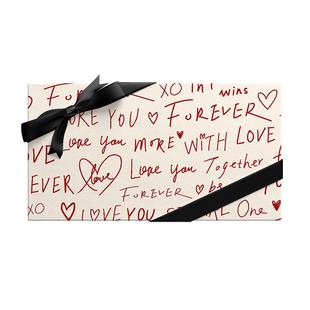 FOREVER XO
wins
YOU FOREVER
LOVE Love You MORE WITH LOVE
EVER Love Love You Together
FOREVER be
XO LOVE YOU One